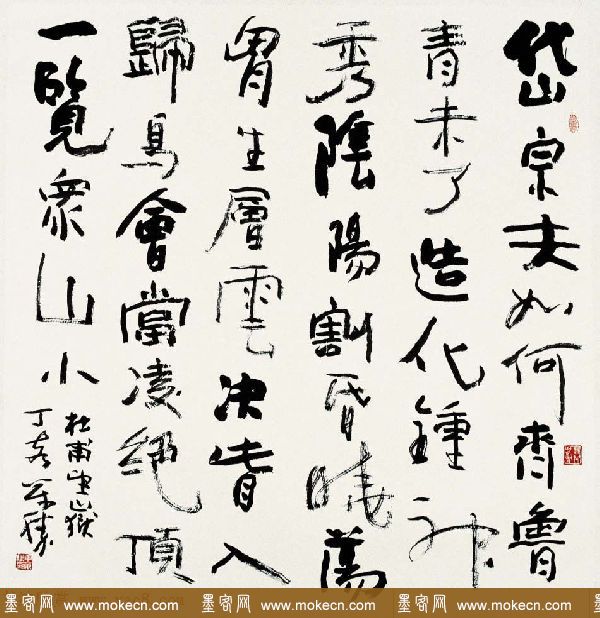 岱宗夫如何齊魯
青未了造化鍾神
秀陰陽割昏曉蕩
胷生層雲决眥入
歸鳥會當凌絕頂
一覽眾山小
杜甫望嶽
丁亥
墨客网 www.mokecn.com 墨客网 www.mokecn.com 墨客网 www.mokecn.com